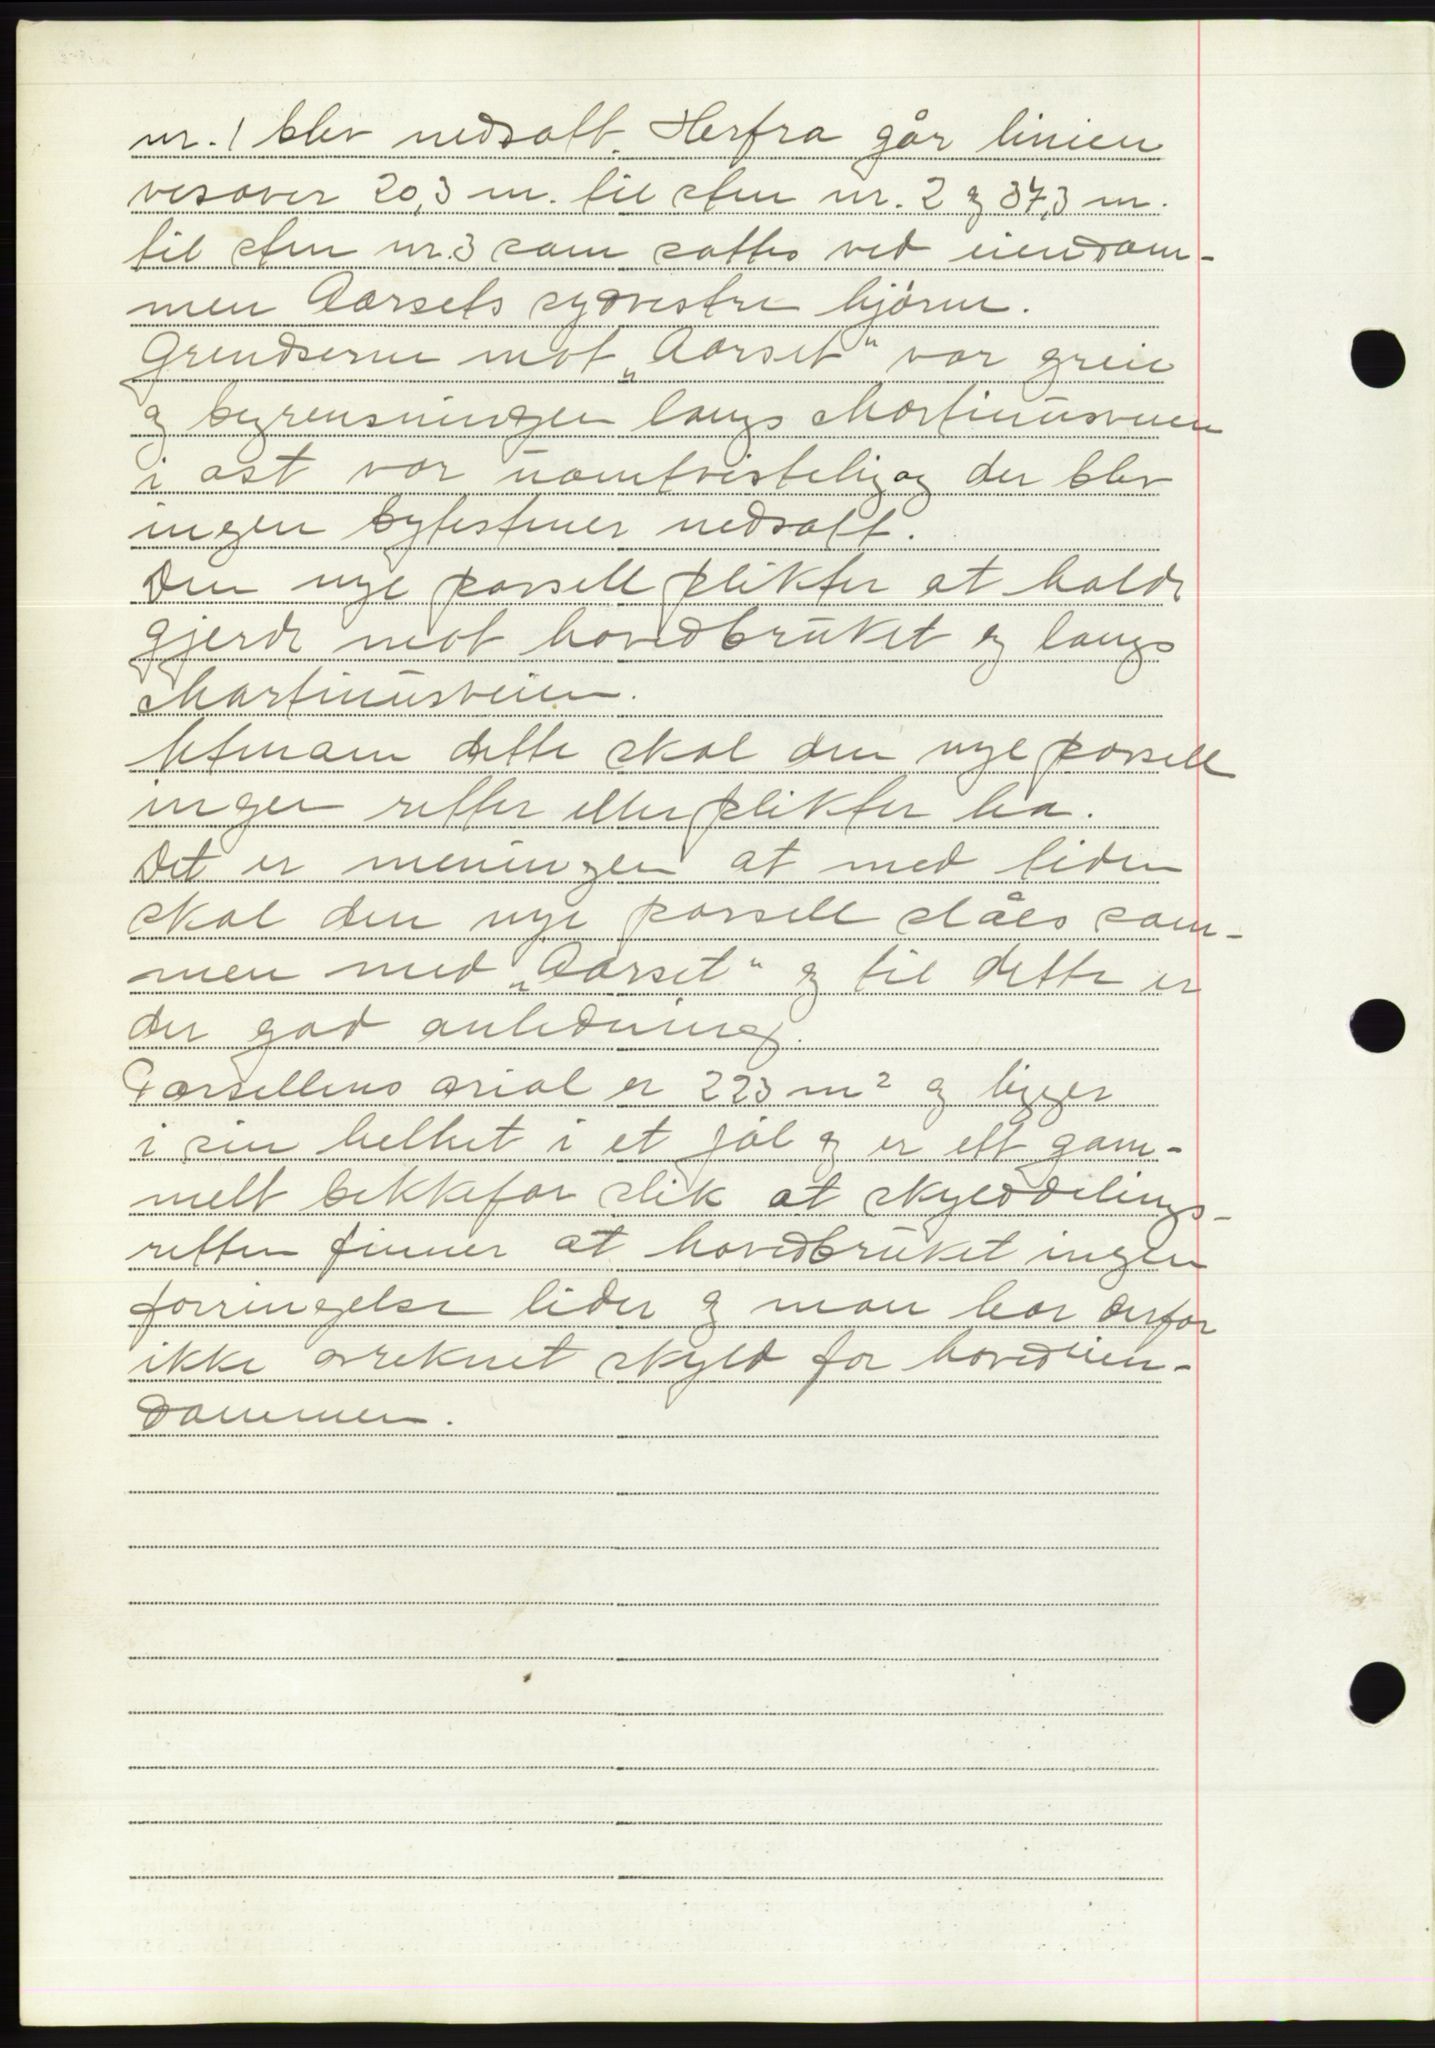 nr. 1 blev nedsatt. Herfra går linien
vesover 20,3 m. til sten nr. 2 og 37,3 m.
til sten nr. 3 som sattes ved eiendom-
men Aarsets sydvestre hjørne.
Grendserne mot „Aarset“ var greie
og begrensningen langs Martinusveien
i øst var uomtvistelig og der blev
ingen bytestener nedsatt.
Den nye parsell plikter at holde
gjerde mot hovedbruket og langs
Martinusveien.
Utenom dette skal den nye parsell
ingen retter eller plikter ha.
Det er meningen at med tiden
skal den nye parsell slåes sam-
men med „Aarset“ og til dette er
der god anledning.
Parsellens arial er 223 m² og ligger
i sin helhet i et jøl og er ett gam-
melt bekkefar slik at skylddelings-
retten finner at hovedbruket ingen
forringelse lider og man har derfor
ikke avreknet skyld for hovedeien-
dommen.